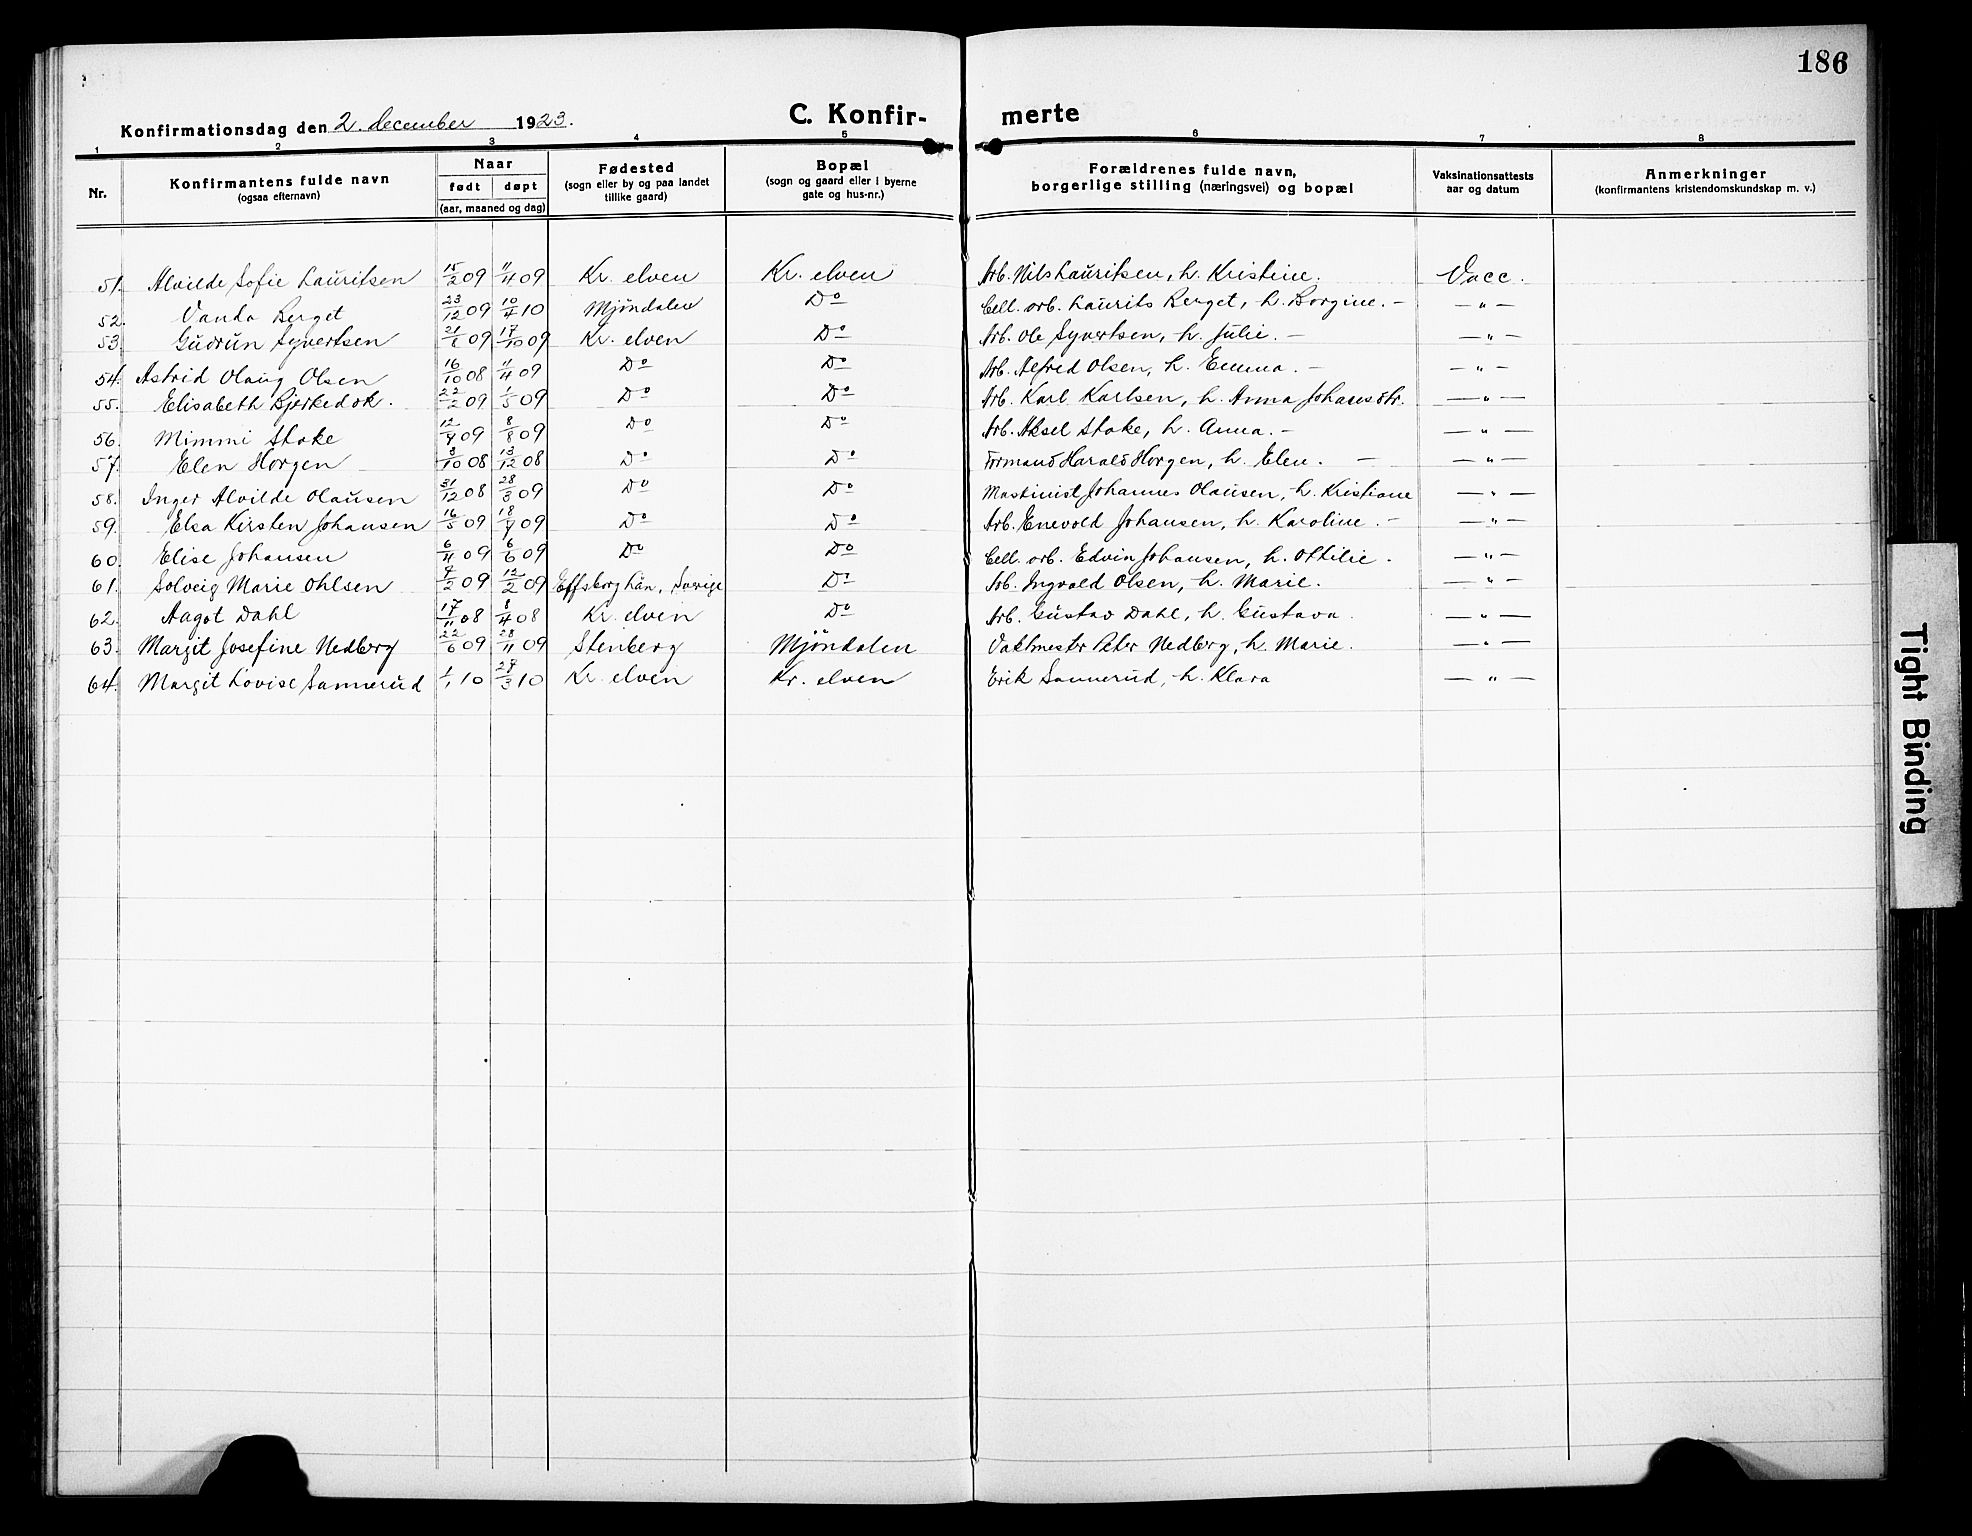 186
Konfirmationsdag den 2. december 1923. C. Konfir- merte
1 2 3 4 5 6 7 8
Nr. Konfirmantens fulde navn (ogsaa efternavn) Naar født døpt (aar, maaned og dag) Fødested (sogn eller by og paa landet tillike gaard) Bopæl (sogn og gaard eller i byerne gate og hus-nr.) Forældrenes fulde navn, borgerlige stilling (næringsvei) og bopæl Vaksinationsattests aar og datum Anmerkninger (konfirmantens kristendomskundskap m. v.)
51. Alvilde Sofie Lauritsen 15/2 09 11/4 09 Kr. elven Kr. elven Arb. Nils Lauritsen, h. Kristine. Vacc.
52. Vanda Berget 23/12 09 10/4 10 Mjøndalen Do Cell. arb. Laurits Berget, h. Borgine. — — " —
53. Gudrun Syvertsen 21/6 09 17/10 09 Kr. elven Do Arb. Ole Syvertsen, h. Julie. — — " —
54. Astrid Olaug Olsen 16/10 08 11/4 09 Do Do Arb. Alfred Olsen, h. Emma. — — " —
55. Elisabeth Bjerkedok. 22/2 09 1/5 09 Do Do Arb. Karl Karlsen, h. Anna Johansdtr. — " —
56. Mimmi Stake 12/4 09 8/8 09 Do Do Arb. Aksel Stake, h. Anna. — — " —
57. Elen Horgen 3/10 08 13/12 08 Do Do Formand Harald Horgen, h. Elen. — — " —
58. Inger Alvilde Olausen 31/12 08 28/3 09 Do Do Maskinist Johannes Olausen, h. Kristiane — " —
59. Elsa Kirsten Johansen 16/5 09 18/7 09 Do Do Arb. Enevold Johansen, h. Karoline. — — " —
60. Elise Johansen 6/4 09 6/6 09 Do Do Cell. arb. Edvin Johansen, h. Othilie. — " —
61. Solveig Marie Ohlsen 7/2 09 12/2 09 Effsborg län, Sverige Do Arb. Ingvald Olsen, h. Marie. — " —
62. Aagot Dahl 17/11 08 8/4 08 Kr. elven Do Arb. Gustav Dahl, h. Gustava. — " —
63. Margit Josefine Nedberg 22/6 09 28/11 09 Stenberg Mjøndalen Vaktmester Peter Nedberg, h. Marie. — " —
64. Margit Lovise Sannerud 1/1 10 28/3 10 Kr. elven Kr. elven Erik Sannerud, h. Klara — " —
Tight Binding